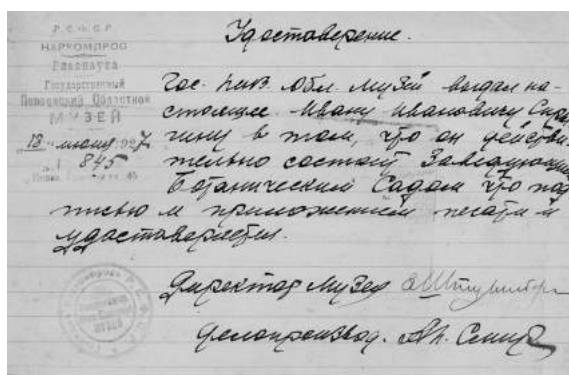 Удостоверение.
Р.С.Ф.С.Р.
НАРКОМПРОС
Главнаука
Государственный
Пензенский Областной
МУЗЕЙ
18 июня 1927
№ 845
Гос. Пенз. Обл. Музей выдал на-
стоящее Ивану Ивановичу Спры-
гину в том, что он действи-
тельно состоит Заведующим
Ботаническим Садом что под-
писью и приложением печати и
удостоверяется.
Директор Музея
Делопроизвод.